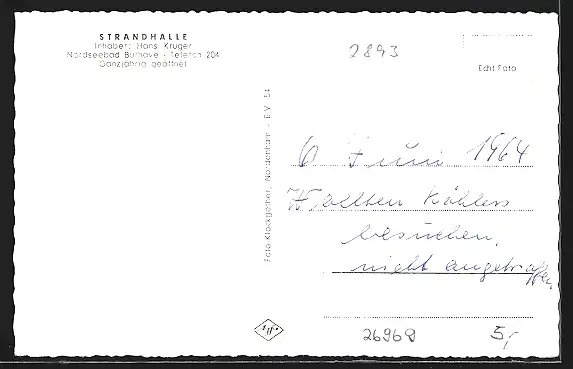 STRANDHALLE
Inhaber: Hans Krüger
Nordseebad Burhave - Telefon 204
Ganzjährig geöffnet
2893
Echt Foto
Foto Klockgether, Nordenham - E.V. 54
6 Juni 1964
Wollten Köhlers
besuchen,
nicht angetroffen,
26969
5,-